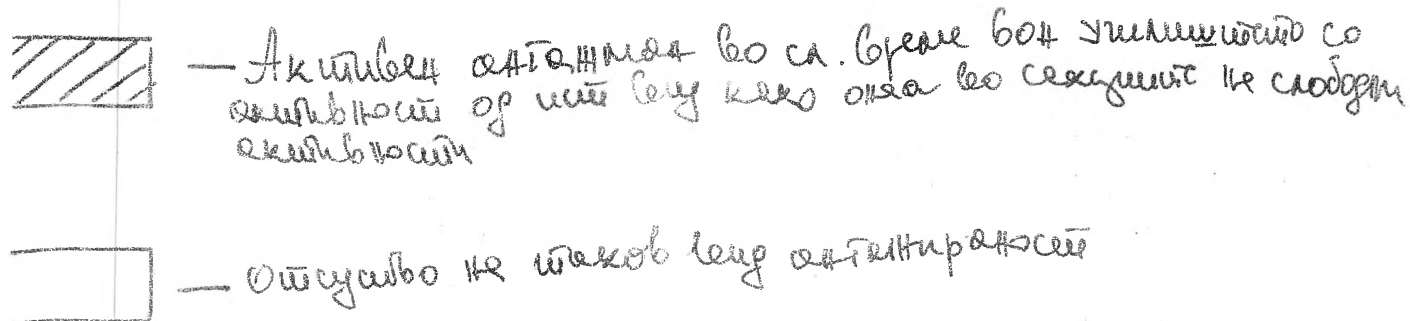 — Активен ангажман во сл. време вон училиштето со
активност од ист вид како онаа во секциите на слободни
активности
— Отсуство на таков вид ангажираност